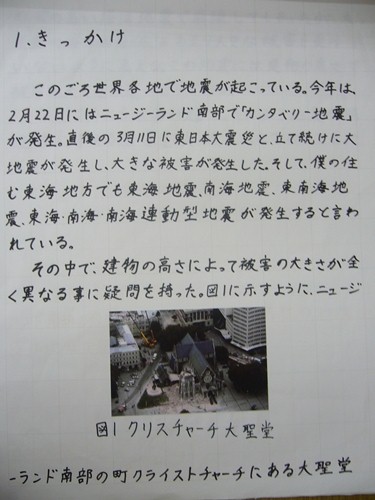 1.きっかけ
このごろ世界各地で地震が起こっている。今年は、
2月22日にはニュージーランド南部で「カンタベリー地震」
が発生。直後の3月11日に東日本大震災と、立て続けに大
地震が発生し、大きな被害が発生した。そして、僕の住
む東海地方でも東海地震、南海地震、東南海地
震、東海・南海・南海連動型地震が発生すると言わ
れている。
その中で、建物の高さによって被害の大きさが全
く異なる事に疑問を持った。図1に示すように、ニュージ
図1 クリスチャーチ大聖堂
ーランド南部の町クライストチャーチにある大聖堂